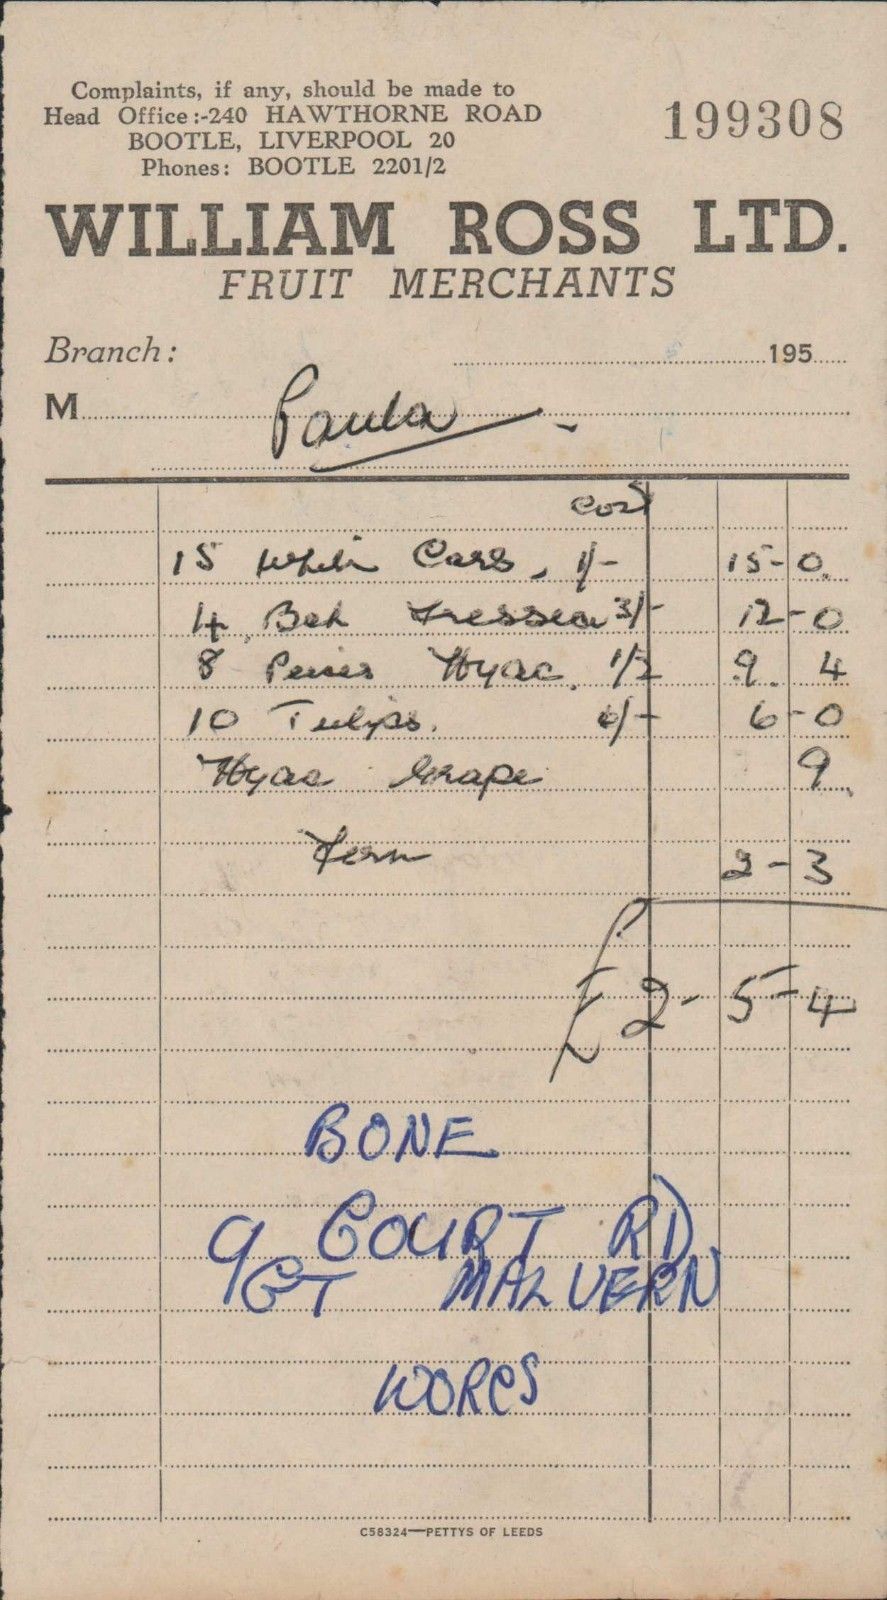 Complaints, if any, should be made to
Head Office :-240 HAWTHORNE ROAD
BOOTLE, LIVERPOOL 20
Phones: BOOTLE 2201/2
199308
WILLIAM ROSS LTD.
FRUIT MERCHANTS
Branch: 195
M Paula
Cost
15 White Cars. 1/- 15-0
4 Bch Fressea 3/- 12-0
8 Hyac. 1/2 9 4
10 Tulips. 6/- 6-0
Hyac Grape 9
Fern 2-3
£2-5-4
BONE
9 COURT RD
GT MALVERN
WORCS
C58324—PETTYS OF LEEDS